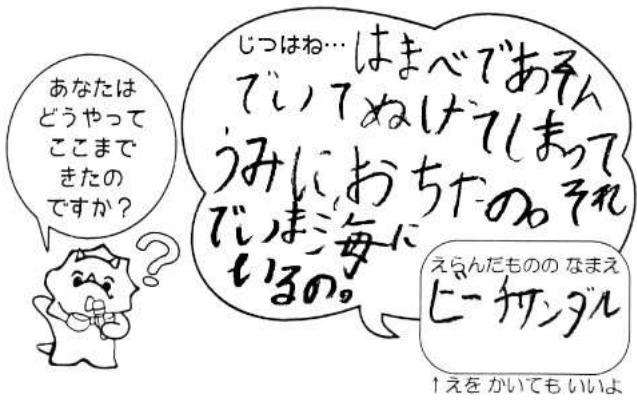 あなたは
どうやって
ここまで
きたの
ですか？
じつはね…はまべであそん
でいてぬげてしまって
うみにおちたの。それ
でいま海に
いるの。
えらんだものの なまえ
ビーチサンダル
↑えを かいても いいよ